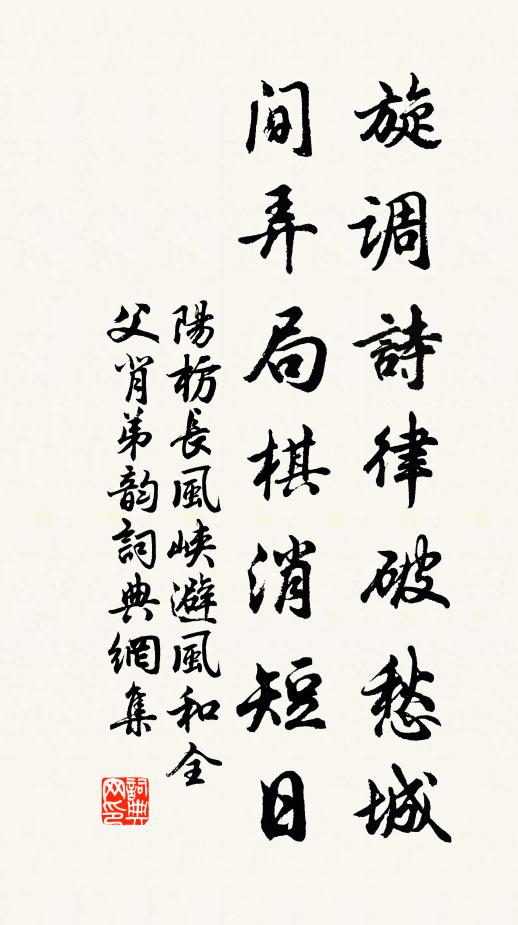 旋调詩律破愁城
间弄局棋消短日
陽枋長風峽避風和全
父肖弟韵詞典網集
詞典
网印